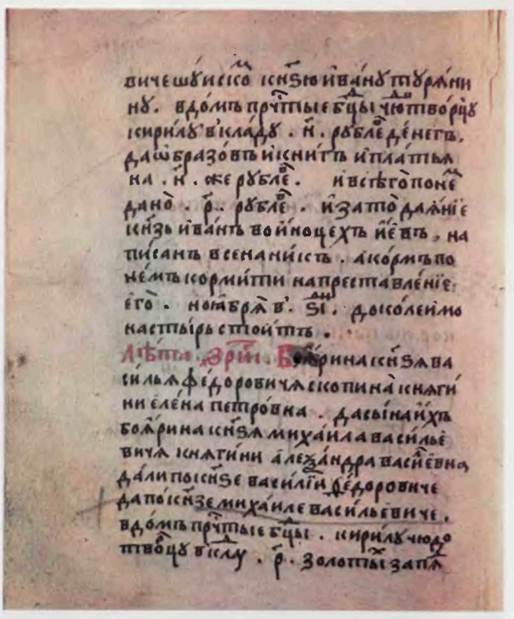 вичешуискѡ кнѕю ивану туряни
ну. вдомъ прчтые бцы чютворцу
кирилу вкладу. н҃. рублев денегъ.
да ѡбразовъ и книгъ и платья
на. н҃. же рублев. и всѣго по нем
дано. р҃. рублев. и за то даяніе
кнзь иванъ во иноцехъ иевъ, на
писанъ в сенаникъ. а кормъ по
немъ кормити на преставленіе
его. ноября в. ѕ҃і. доколе и мо
настырь стоитъ.
Лѣта ҂зри҃і. Боярина кнѕя ва
силья федоровичя скопина княги
ни елена петровна. да сына ихъ
боярина кнѕя михаила василье
вичя княгини алеѯандра васиевна
дали по кнѕе василіи федоровиче
да по кнзе михаиле васильевиче.
в домъ прчтые бцы. кирилу чюдо
творцу вкладу. р҃. золотых за пя